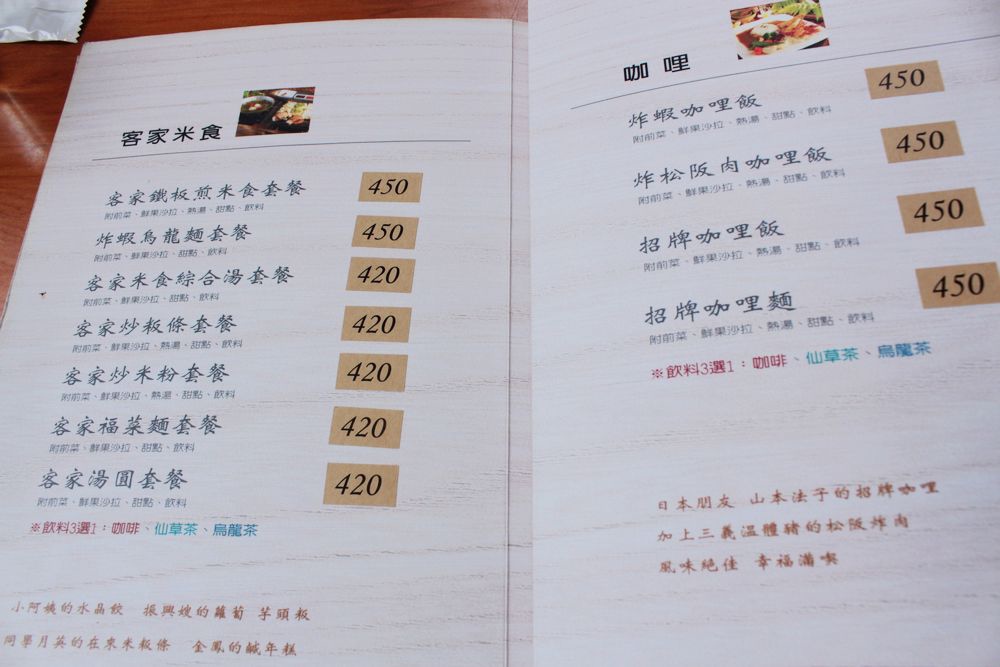 客家米食
客家鐵板煎米食套餐 450
附前菜、鮮果沙拉、熱湯、甜點、飲料
炸蝦烏龍麵套餐 450
附前菜、鮮果沙拉、甜點、飲料
客家米食綜合湯套餐 420
附前菜、鮮果沙拉、甜點、飲料
客家炒粄條套餐 420
附前菜、鮮果沙拉、熱湯、甜點、飲料
客家炒米粉套餐 420
附前菜、鮮果沙拉、熱湯、甜點、飲料
客家福菜麵套餐 420
附前菜、鮮果沙拉、甜點、飲料
客家湯圓套餐 420
附前菜、鮮果沙拉、甜點、飲料
※飲料3選1：咖啡、仙草茶、烏龍茶
小阿姨的水晶餃 振興嫂的蘿蔔 芋頭粄
同學月英的在來米粄條 金鳳的鹹年糕
咖哩
炸蝦咖哩飯 450
附前菜、鮮果沙拉、熱湯、甜點、飲料
炸松阪肉咖哩飯 450
附前菜、鮮果沙拉、熱湯、甜點、飲料
招牌咖哩飯 450
附前菜、鮮果沙拉、熱湯、甜點、飲料
招牌咖哩麵 450
附前菜、鮮果沙拉、熱湯、甜點、飲料
※飲料3選1：咖啡、仙草茶、烏龍茶
日本朋友 山本法子的招牌咖哩
加上三義溫體豬的松阪炸肉
風味絕佳 幸福滿喫